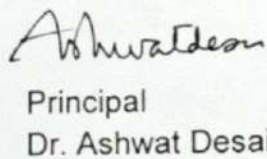 Ashwatdesai
Principal
Dr. Ashwat Desai